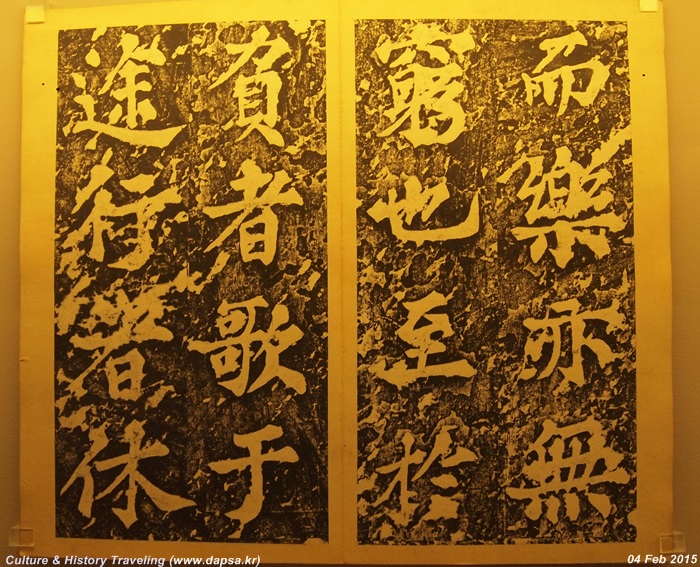 而樂亦無
窮也至於
負者歌于
途行者休
Culture & History Traveling (www.dapsa.kr)
04 Feb 2015